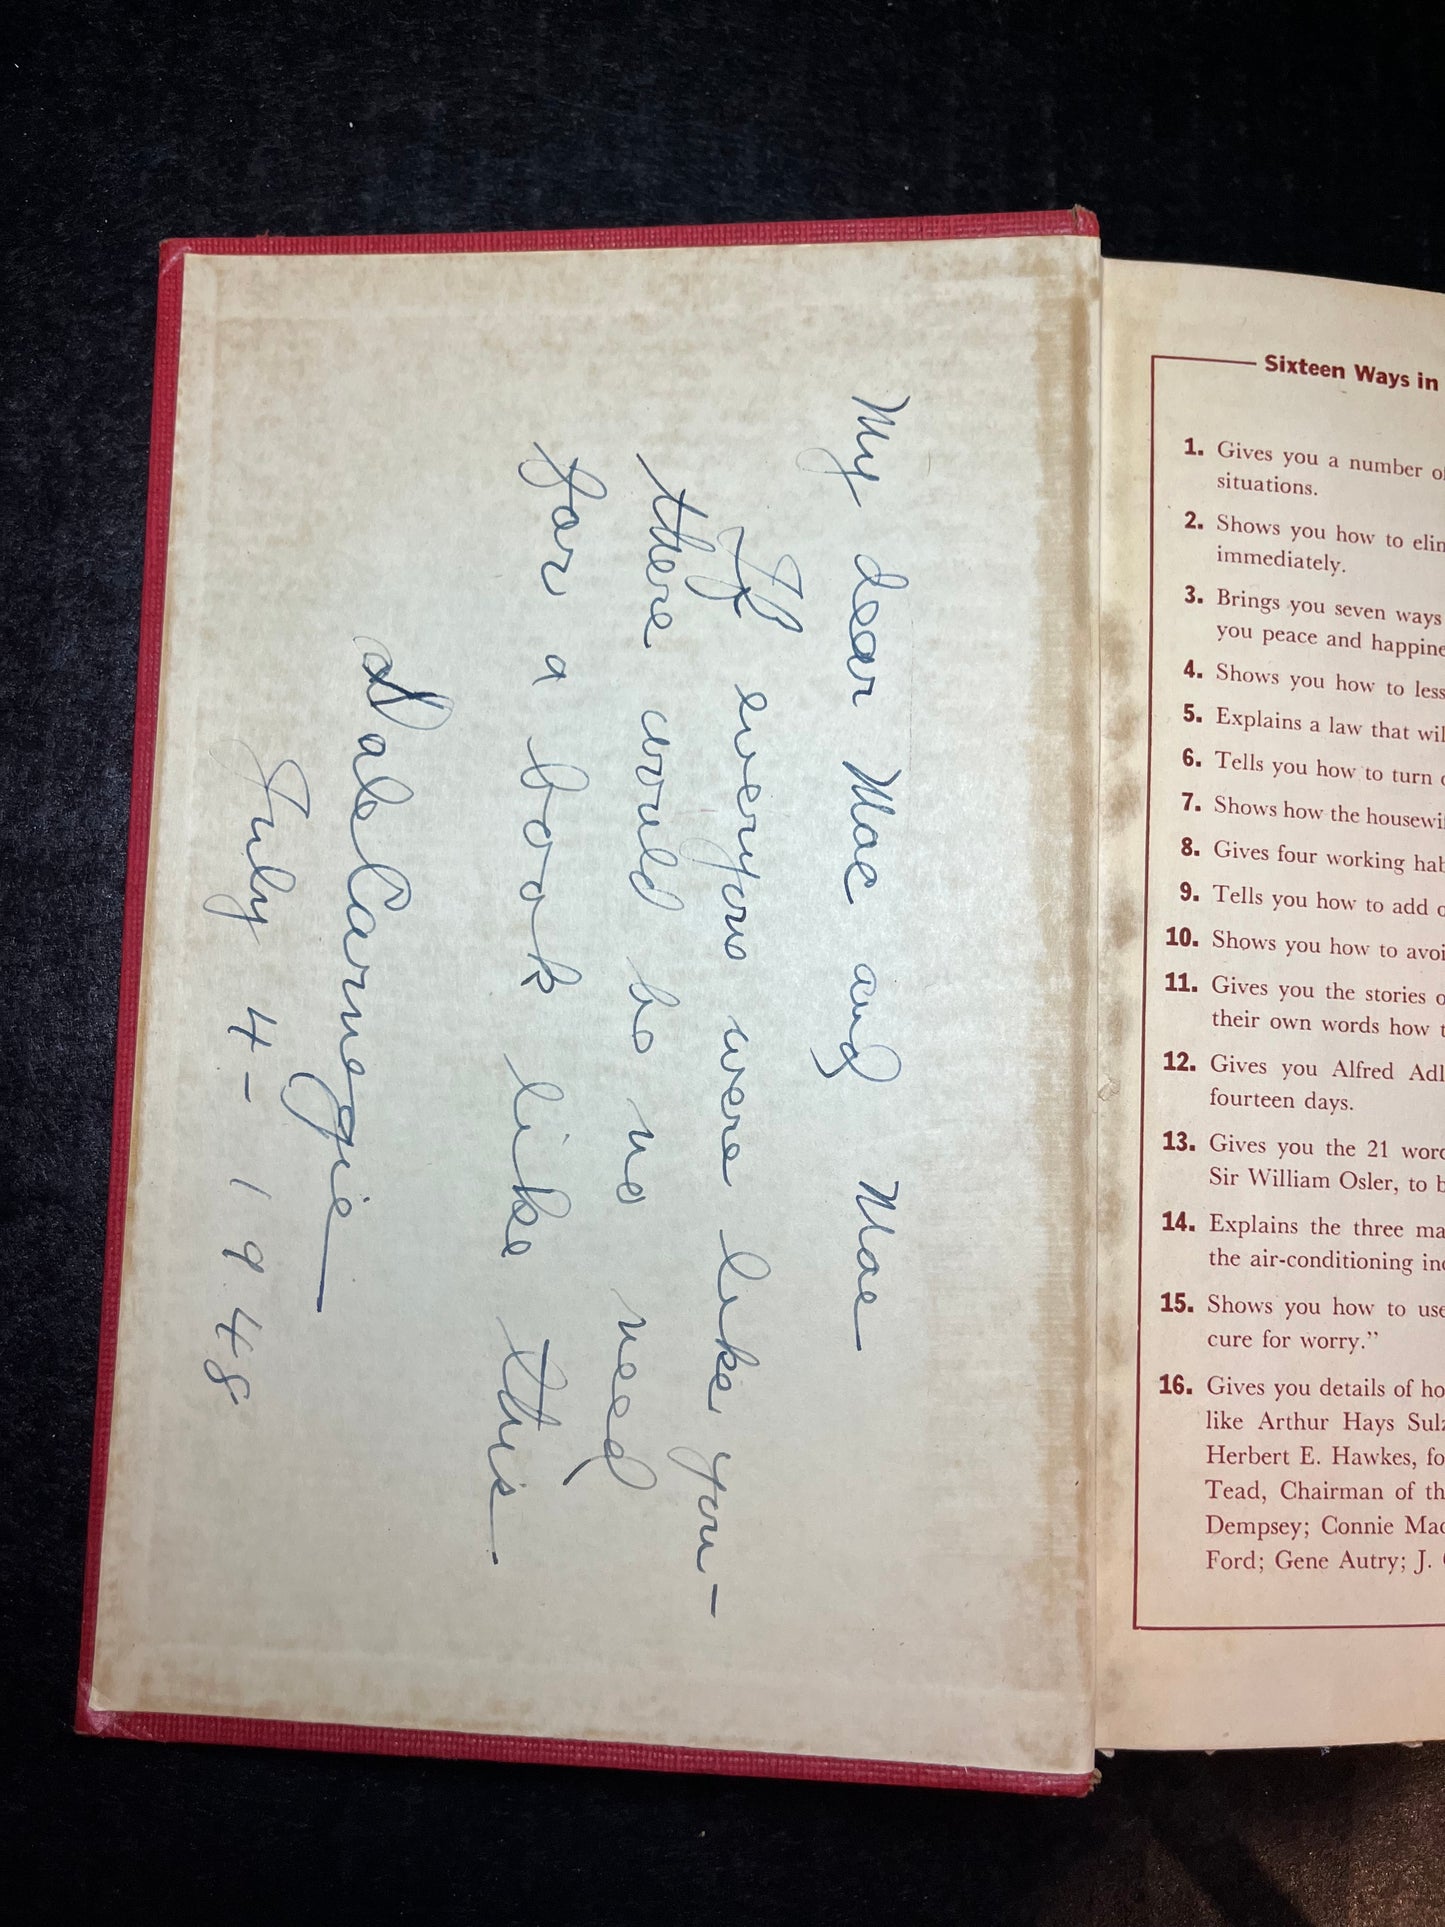 My dear Mac and Mae
If everyone were like you-
there would be no need
for a book like this.
Dale Carnegie
July 4-1948
Sixteen Ways in
1. Gives you a number of
situations.
2. Shows you how to elim
immediately.
3. Brings you seven ways
you peace and happine
4. Shows you how to less
5. Explains a law that wil
6. Tells you how to turn
7. Shows how the housewi
8. Gives four working hab
9. Tells you how to add
10. Shows you how to avoi
11. Gives you the stories o
their own words how t
12. Gives you Alfred Adl
fourteen days.
13. Gives you the 21 word
Sir William Osler, to b
14. Explains the three ma
the air-conditioning ind
15. Shows you how to use
cure for worry.”
16. Gives you details of ho
like Arthur Hays Sulz
Herbert E. Hawkes, fo
Tead, Chairman of th
Dempsey; Connie Mac
Ford; Gene Autry; J.